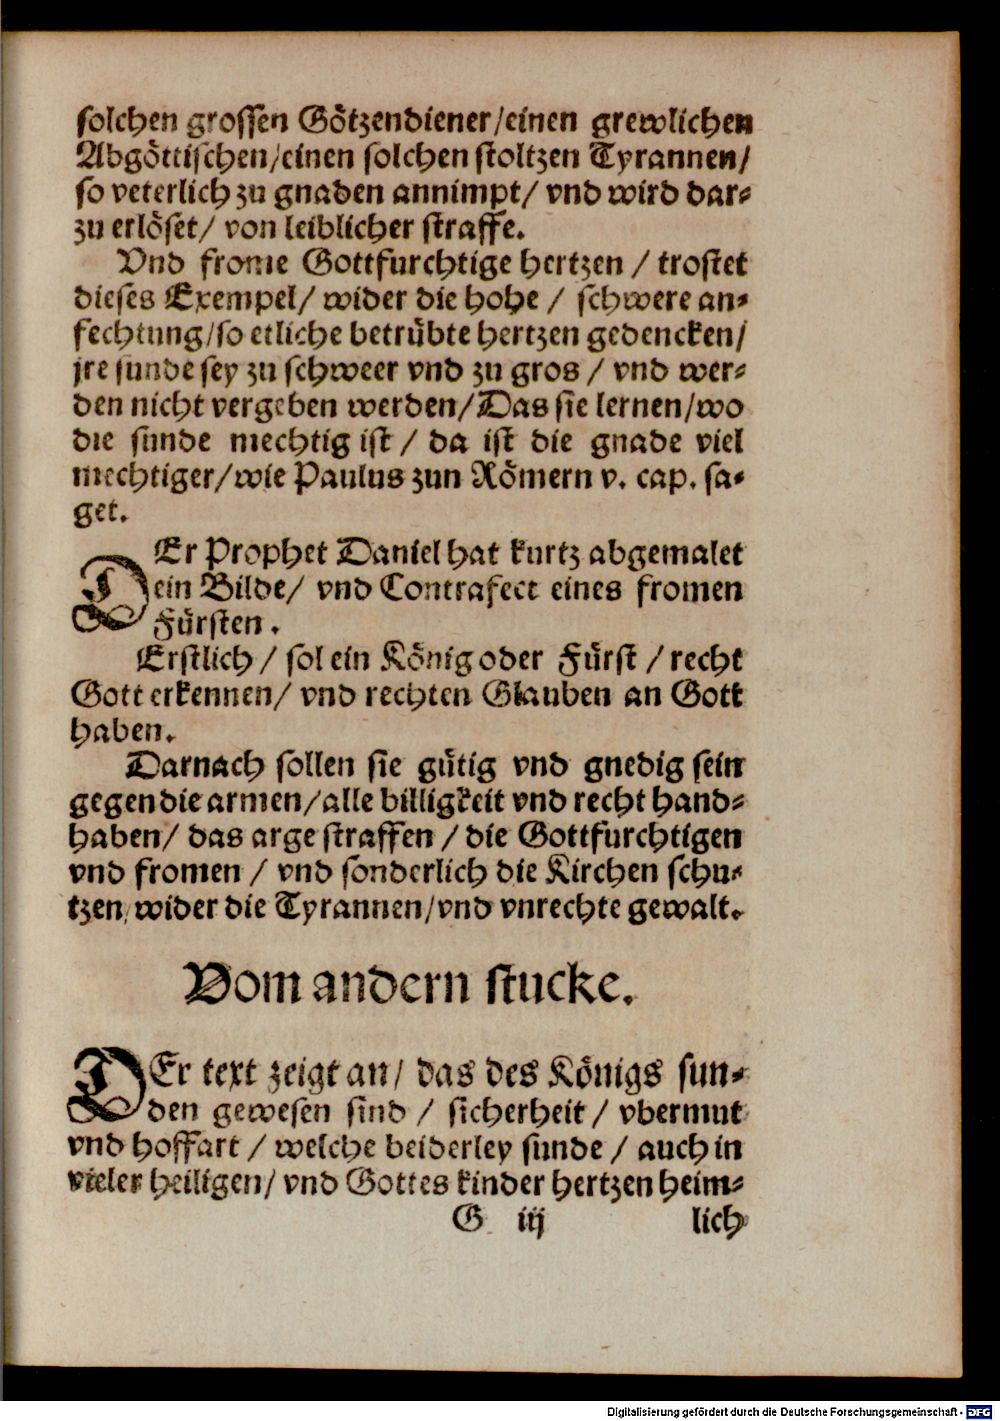 solchen grossen Götzendiener/einen grewlichen
Abgöttischen/einen solchen stoltzen Tyrannen/
so veterlich zu gnaden annimpt/ vnd wird dar-
zu erlöset/ von leiblicher straffe.
Vnd frome Gottfurchtige hertzen / trostet
dieses Exempel/ wider die hohe / schwere an-
fechtung/so etliche betrübte hertzen gedencken/
jre sunde sey zu schweer vnd zu gros / vnd wer-
den nicht vergeben werden/Das sie lernen/wo
die sunde mechtig ist / da ist die gnade viel
mechtiger/wie Paulus zun Römern v. cap. sa-
get.
DEr Prophet Daniel hat kurtz abgemalet
ein Bilde/ vnd Contrafect eines fromen
Fürsten.
Erstlich / sol ein König oder Fürst / recht
Gott erkennen/ vnd rechten Glauben an Gott
haben.
Darnach sollen sie gütig vnd gnedig sein
gegen die armen/alle billigkeit vnd recht hand-
haben/ das arge straffen / die Gottfurchtigen
vnd fromen / vnd sonderlich die Kirchen schu-
tzen/wider die Tyrannen/vnd vnrechte gewalt.
Vom andern stucke.
DEr text zeigt an/ das des Königs sun-
den gewesen sind / sicherheit / vbermut
vnd hoffart / welche beiderley sunde / auch in
vieler heiligen/ vnd Gottes kinder hertzen heim-
G iij lich
Digitalisierung gefördert durch die Deutsche Forschungsgemeinschaft - DFG